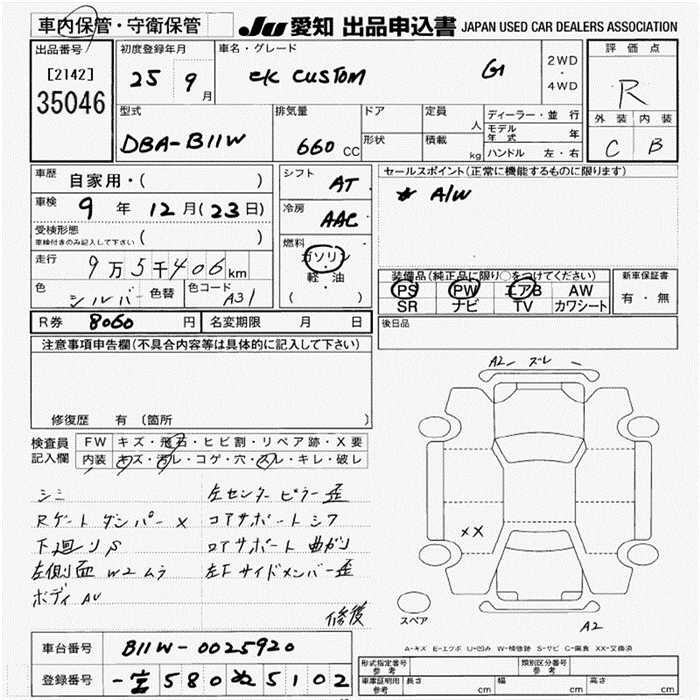 車内保管・守衛保管 JU 愛知 出品申込書 JAPAN USED CAR DEALERS ASSOCIATION
出品番号 初度登録年月 車名・グレード 評価点
[2142] 25 9月 eK CUSTOM G 2WD・4WD R
35046
型式 排気量 ドア 定員 人 ディーラー・並行 外装 内装
DBA-B11W 660 CC 形状 積載 kg モデル年式 年 C B
ハンドル 左・右
車歴 自家用・( ) シフト AT セールスポイント(正常に機能するものに限ります)
車検 9年 12月(23日) 冷房 AAC A/W
受検形態 車検付きのみ記入して下さい ( )
燃料 ガソリン・軽油 ( )
走行 9万5千406km
装備品(純正品に限り○をつけてください) 新車保証書
色 シルバー 色替 色コード A31 PS PW エアB AW 有・無
SR ナビ TV カワシート
R券 8060 円 名変期限 月 日 後日品
注意事項申告欄(不具合内容等は具体的に記入して下さい)
A2 ズレ
修復歴 有 (箇所
検査員記入欄 FW キズ・飛石・ヒビ割・リペア跡・X要
内装 キズ・汚レ・コゲ・穴・スレ・キレ・破レ
シミ 左センターピラー歪
Rゲートダンパー X コアサポートシワ
下廻りS ロアサポート曲がり
左側面 W2ムラ 左Fサイドメンバー歪
ボディAU
修後
XX
スペア
A2
A-キズ E-エクボ U-凹み W-補修跡 S-サビ C-腐食 XX-交換済
車台番号 B11W-0025920 形式指定番号 参考 類別区分番号 参考
登録番号 580 5102 車庫証明用 参考 長さ cm 幅 cm 高さ cm